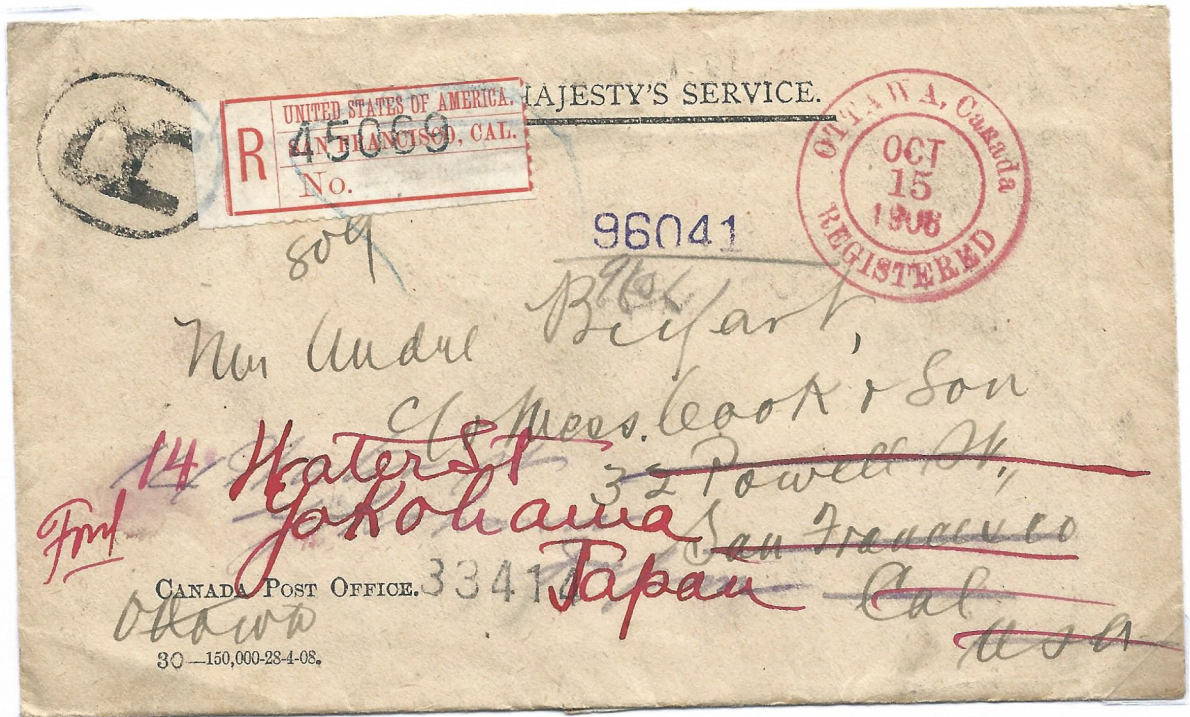 R
UNITED STATES OF AMERICA.
R
SAN FRANCISCO, CAL.
45069
No.
MAJESTY'S SERVICE.
OTTAWA, Canada
OCT
15
1908
REGISTERED
809
96041
Andre
C/o Mess. Cook & Son
32 Powell St.,
San Francisco
Cal
USA
14 Water St
Yokohama
Japan
CANADA POST OFFICE.
33414
Ottawa
30—150,000-28-4-08.